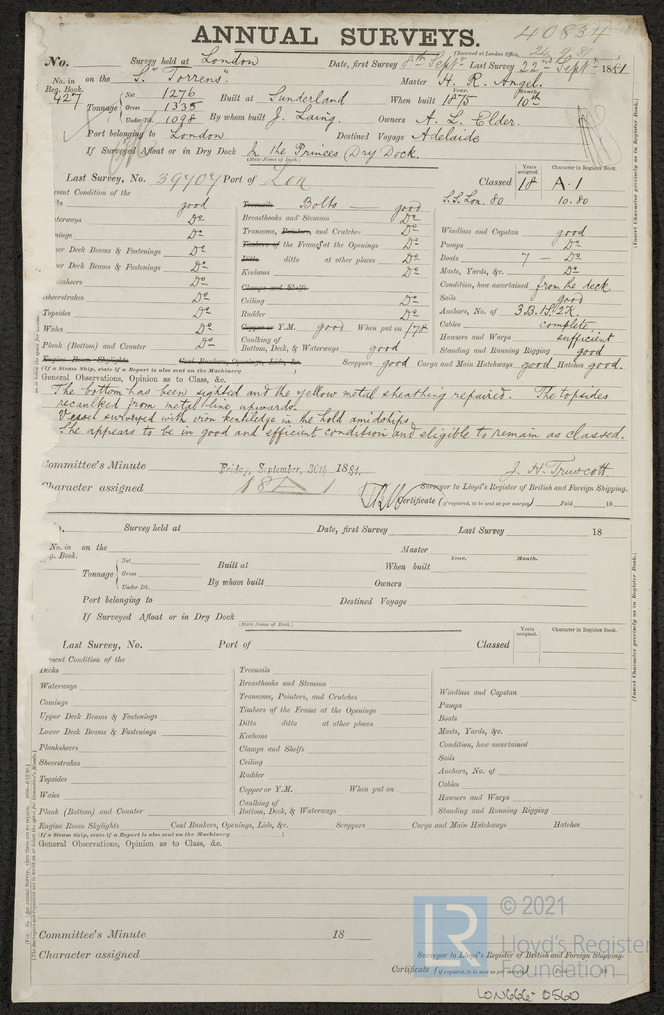 ANNUAL SURVEYS.
40834
(Received at London Office,
24.9.81
No. Survey held at London Date, first Survey 8th Septr Last Survey 22nd Septr 1881
No. in Reg. Book. 427 on the S. "Torrens". Master H. R. Angel.
Tonnage Net 1276 Built at Sunderland When built Year. 1875 Month. 10th
Gross 1335
Under Dk. 1098 By whom built J. Laing. Owners A. L. Elder.
Port belonging to London Destined Voyage Adelaide
If Surveyed Afloat or in Dry Dock In the Princes Dry Dock.
(State Name of Dock.)
Last Survey, No. 39707 Port of Lon Classed Years assigned. 18 Character in Register Book. A.1
S.S. Lon. 80 10.80
(Insert Character precisely as in Register Book.)
esent Condition of the
ks good
terways Do
mings Do
per Deck Beams & Fastenings Do
wer Deck Beams & Fastenings Do
ksheers Do
Sheerstrakes Do
Topsides Do
Wales Do
Plank (Bottom) and Counter Do
Treenails Bolts good
Breasthooks and Stemson Do
Transoms, Pointers, and Crutches Do
Timbers of the Frame at the Openings Do
Ditto ditto at other places Do
Keelsons Do
Clamps and Shelfs
Ceiling Do
Rudder Do
Copper or Y.M. good When put on 1/78
Caulking of Bottom, Deck, & Waterways good
Windlass and Capstan good
Pumps Do
Boats 7 — Do
Masts, Yards, &c. Do
Condition, how ascertained from the deck
Sails good
Anchors, No. of 3.B. 1S. 2K.
Cables complete
Hawsers and Warps sufficient
Standing and Running Rigging good
Engine Room Skylights Coal Bunkers, Openings, Lids, &c. Scuppers good Cargo and Main Hatchways good Hatches good.
(If a Steam Ship, state if a Report is also sent on the Machinery
General Observations, Opinion as to Class, &c.
The bottom has been sighted and the yellow metal sheathing repaired. The topsides
recaulked from metal-line upwards.
Vessel surveyed with iron kentledge in the hold amidships.
She appears to be in good and efficient condition and eligible to remain as classed.
Committee's Minute Friday, September, 30th 1881.
J. H. Truscott
Character assigned 18 A 1
Surveyor to Lloyd's Register of British and Foreign Shipping.
Certificate (if required, to be sent as per margin) Paid 18
Survey held at Date, first Survey Last Survey 18
No. in g. Book. on the Master
Tonnage Net Built at When built Year. Month.
Gross
Under Dk. By whom built Owners
Port belonging to Destined Voyage
If Surveyed Afloat or in Dry Dock
(State Name of Dock.)
Last Survey, No. Port of Classed Years assigned. Character in Register Book.
(Insert Character precisely as in Register Book.)
esent Condition of the
Decks
Waterways
Comings
Upper Deck Beams & Fastenings
Lower Deck Beams & Fastenings
Planksheers
Sheerstrakes
Topsides
Wales
Plank (Bottom) and Counter
Treenails
Breasthooks and Stemson
Transoms, Pointers, and Crutches
Timbers of the Frame at the Openings
Ditto ditto at other places
Keelsons
Clamps and Shelfs
Ceiling
Rudder
Copper or Y.M. When put on
Caulking of Bottom, Deck, & Waterways
Windlass and Capstan
Pumps
Boats
Masts, Yards, &c.
Condition, how ascertained
Sails
Anchors, No. of
Cables
Hawsers and Warps
Standing and Running Rigging
Engine Room Skylights Coal Bunkers, Openings, Lids, &c. Scuppers Cargo and Main Hatchways Hatches
(If a Steam Ship, state if a Report is also sent on the Machinery )
General Observations, Opinion as to Class, &c.
Committee's Minute 18
Character assigned
Surveyor to Lloyd's Register of British and Foreign Shipping.
Certificate (if required, to be sent as per margin) Paid 18
LR
© 2021
Lloyd's Register
Foundation
LON666-0560